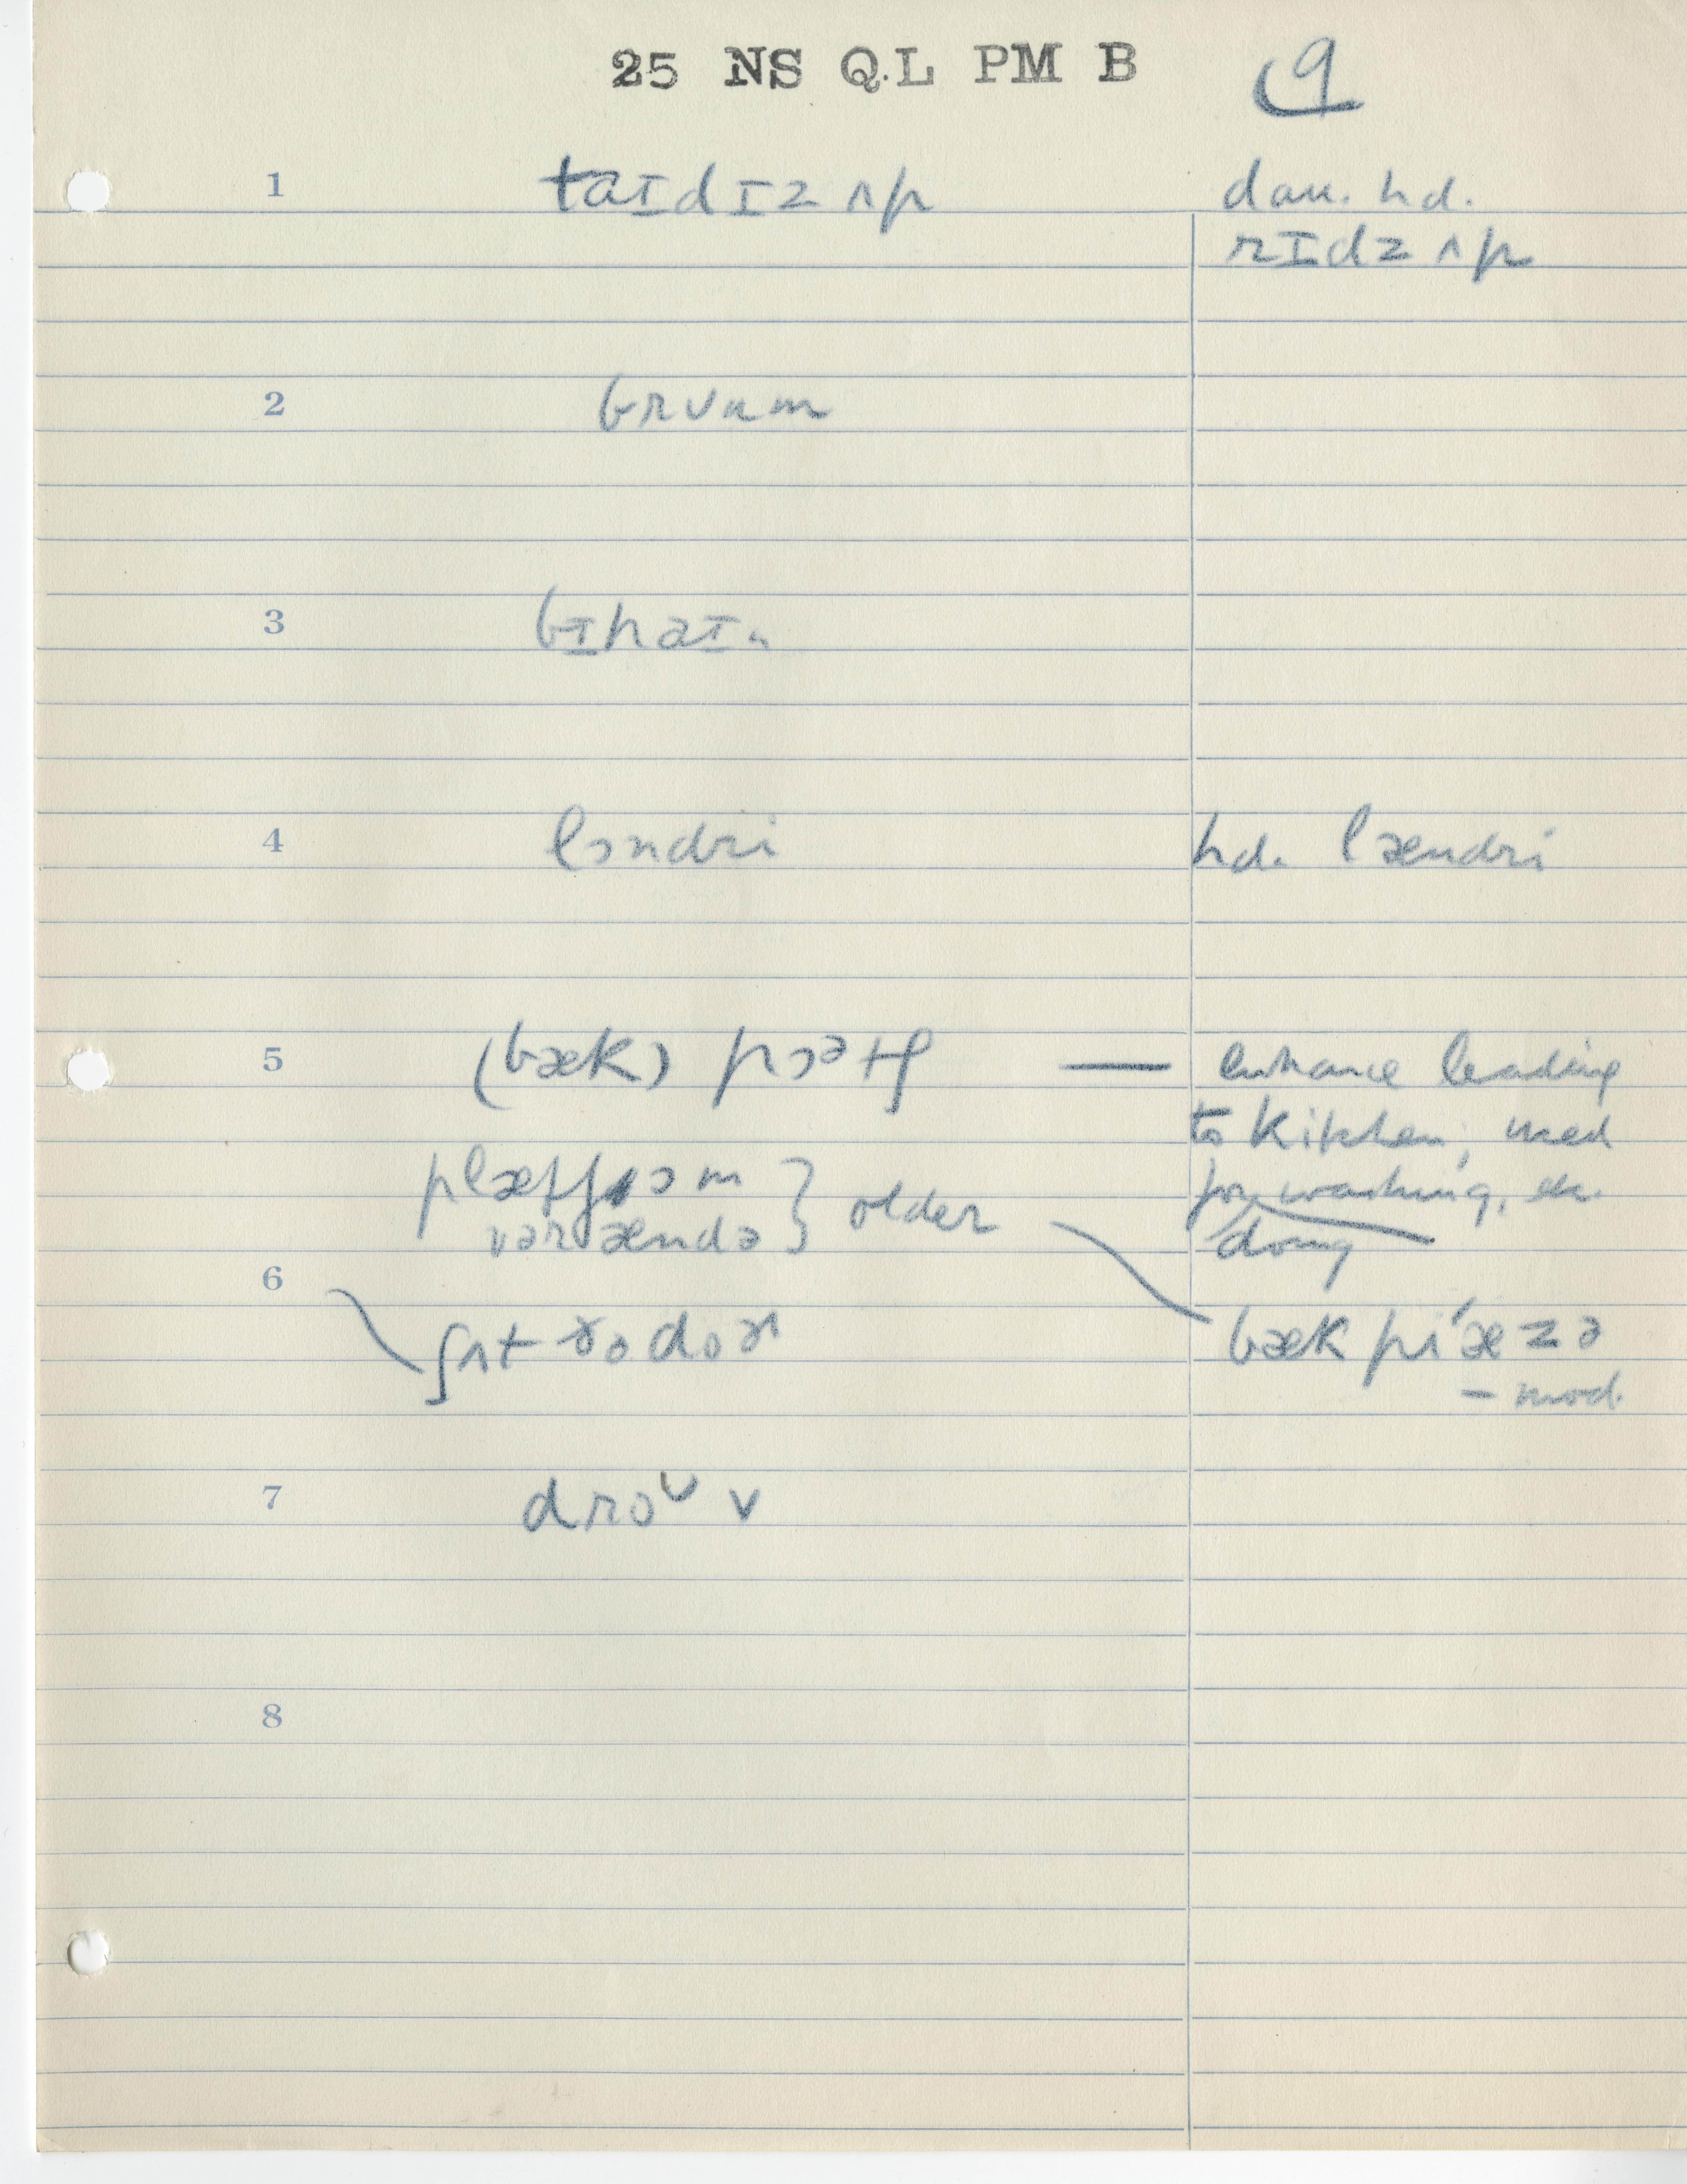 25 NS QL PM B 9
1 taɪdɪz ʌp dau. hd.
rɪdz ʌp
2 brʊum
3 bɪhaɪn
4 lɔndri hd. lændri
5 (bæk) pɔətʃ — entrance leading
to kitchen, used
plætfɔəm } older for washing, etc.
vərændə doing
6 ʃʌt ðə doɚ bæk píæzə
– mod.
7 droᴗv
8